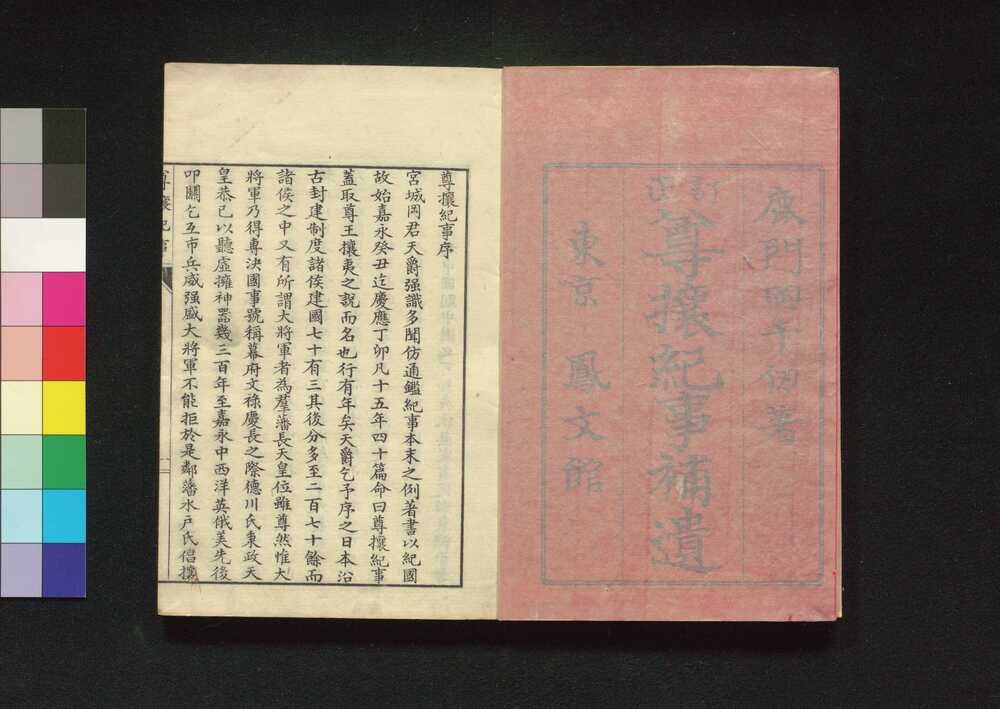 鹿門岡千仞著
訂正
尊攘紀事補遺
東京 鳳文館
尊攘紀事序
宮城岡君天爵强識多聞仿通鑑紀事本末之例著書以紀國
故始嘉永癸丑迄慶應丁卯凡十五年四十篇命曰尊攘紀事
蓋取尊王攘夷之説而名也行有年矣天爵乞予序之日本沿
古封建制度諸侯建國七十有三其後分多至二百七十餘而
諸侯之中又有所謂大將軍者為羣藩長天皇位雖尊然惟大
將軍乃得專決國事號稱幕府文祿慶長之際德川氏東政天
皇恭己以聽虛擁神器幾三百年至嘉永中西洋英俄美先後
叩關乞互市兵威强盛大將軍不能拒於是鄰藩水戶氏倡攘
尊攘紀事